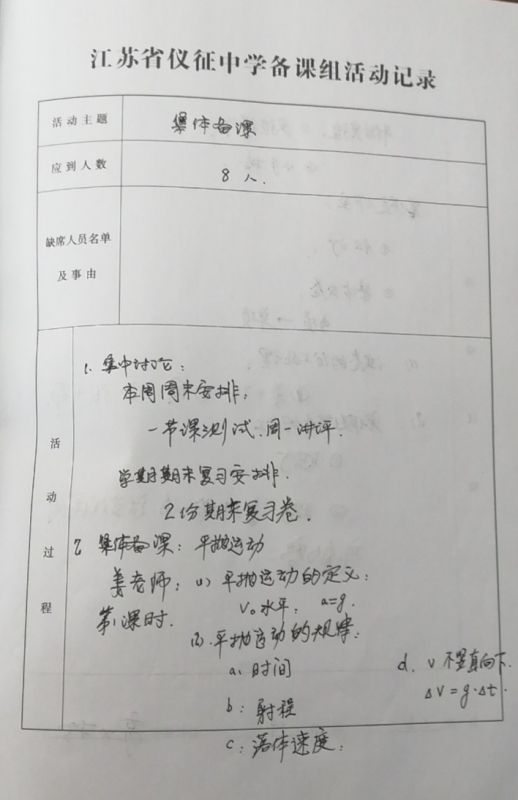 江苏省仪征中学备课组活动记录
活动主题
集体备课
应到人数
8人.
缺席人员名单
及事由
活动过程
1. 集中讨论:
本周周末安排:
一节课测试.周一讲评.
学期期末复习安排.
2份期末复习卷.
2 集体备课: 平抛运动
姜老师: (1) 平抛运动的定义:
第1课时.
V₀水平, a=g.
(2). 平抛运动的规律:
a. 时间
b: 射程
c: 落体速度:
d. v 不竖直向下.
ΔV=g·Δt.